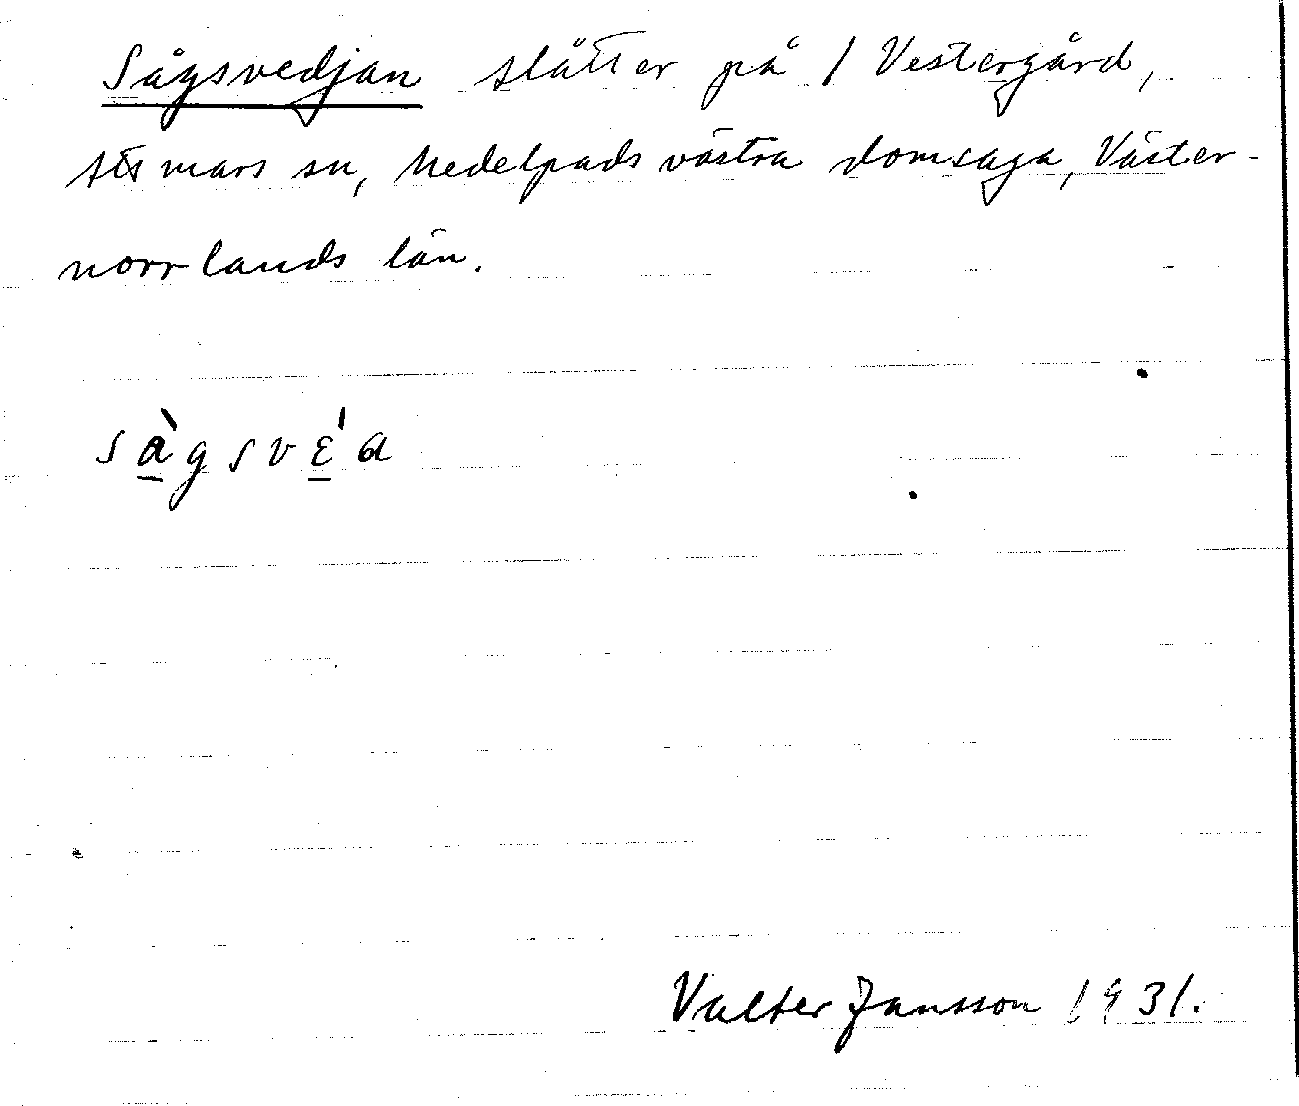 Sågsvedjan slåtter på 1 Vestergård,
Attmars sn, Medelpads västra domsaga, Väster-
norrlands län.
sàgsvɛ́a
Valter Jansson 1931.